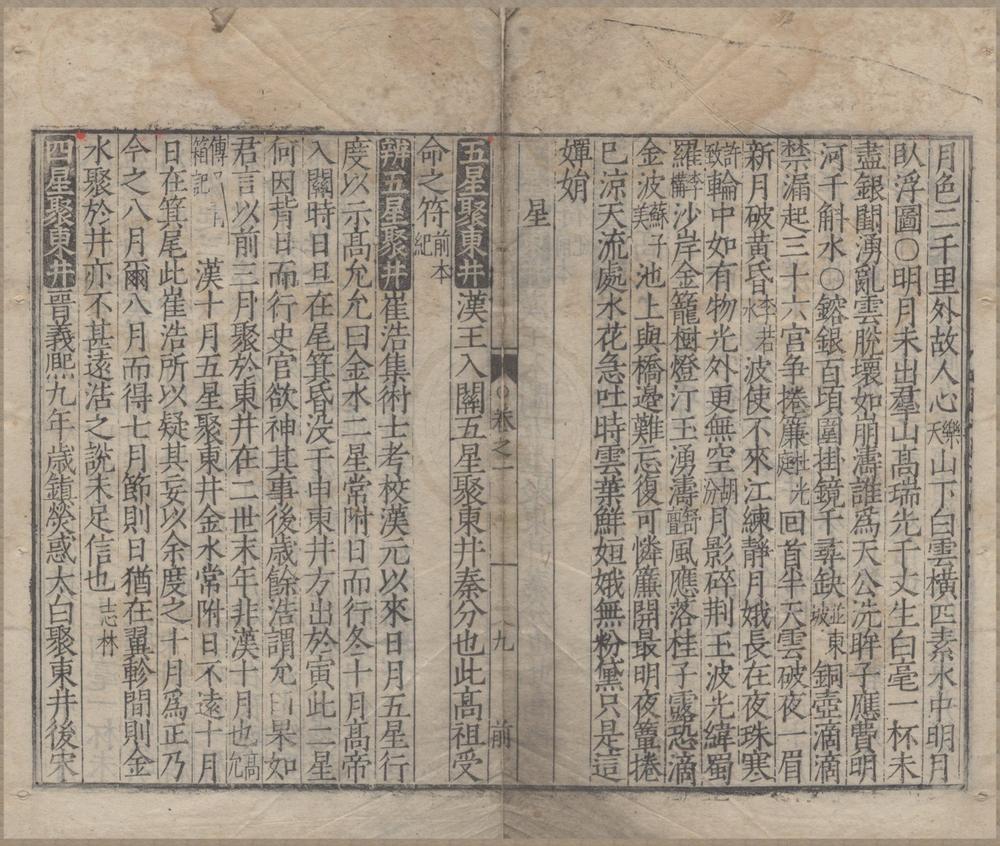 月色二千里外故人心樂天山下白雲橫匹素水中明月
臥浮圖〇明月未出羣山髙瑞光千丈生白毫一杯未
盡銀闕湧亂雲脫壞如崩濤誰爲天公洗眸子應費明
河千斛水〇鎔銀百頃圍掛鏡千尋缺並東坡銅壺滴滴
禁漏起三十六宫争捲簾杜光庭回首半天雲破夜一眉
新月破黃昏李若水波使不來江練靜月娥長在夜珠寒
許致輪中如有物光外更無空胡份月影碎荆玉波光緯蜀
羅李覯沙岸金籠樹燈汀玉湧濤舒亶風應落桂子露恐滴
金波蘇子美池上與橋邊難忘復可憐簾開最明夜簟捲
巳凉天流處水花急吐時雲葉鮮姮娥無粉黛只是逞
嬋娟
星
卷之一
九
前
五星聚東井漢王入關五星聚東井秦分也此髙祖受
命之符前本紀
辨五星聚井崔浩集術士考校漢元以來日月五星行
度以示髙允允曰金水二星常附日而行冬十月髙帝
入關時日旦在尾箕昏没于申東井方出於寅此二星
何因背日而行史官欲神其事後歲餘浩謂允曰果如
君言以前三月聚於東井在二世末年非漢十月也髙允
傳漢十月五星聚東井金水常附日不遠十月
日在箕尾此崔浩所以疑其妄以余度之十月爲正乃
今之八月爾八月而得七月節則日猶在翼軫間則金
水聚於井亦不甚遠浩之說未足信也志林
四星聚東井晉義熈九年歲鎮熒惑太白聚東井後宋